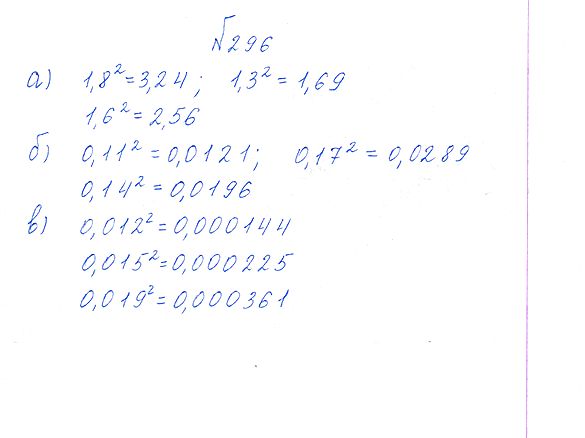 №296
а) 1,8²=3,24; 1,3²=1,69
1,6²=2,56
б) 0,11²=0,0121; 0,17²=0,0289
0,14²=0,0196
в) 0,012²=0,000144
0,015²=0,000225
0,019²=0,000361